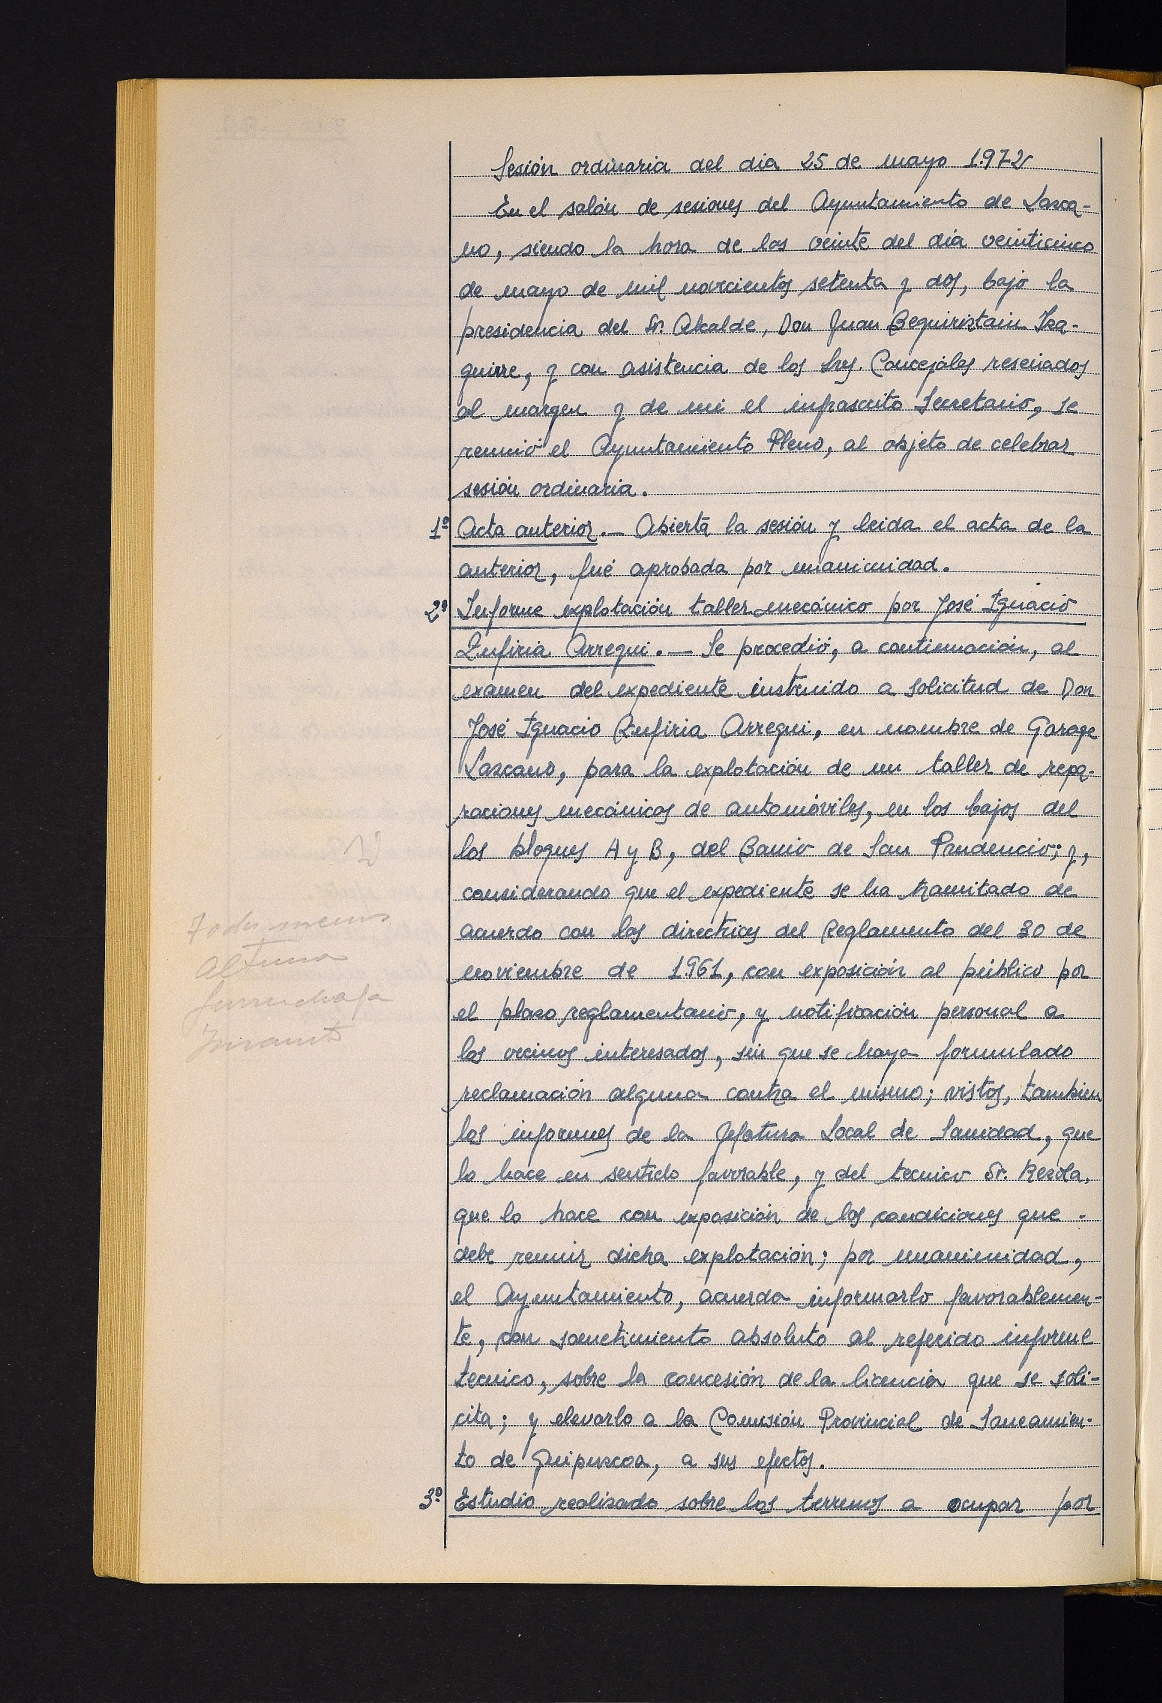 Sesión ordinaria del dia 25 de mayo 1.972
En el salón de sesiones del Ayuntamiento de Lazca-
no, siendo la hora de las veinte del dia veinticinco
de mayo de mil novecientos setenta y dos, bajo la
presidencia del Sr. Alcalde, Don Juan Beguiristain Iza-
guirre, y con asistencia de los Sres. Concejales reseñados
al margen y de mi el infrascrito Secretario, se
reunió el Ayuntamiento Pleno, al objeto de celebrar
sesión ordinaria.
1º Acta anterior.— Abierta la sesión y leida el acta de la
anterior, fué aprobada por unanimidad.
2º Informe explotación taller mecánico por José Ignacio
Zufiria Arregui.— Se procedió, a continuación, al
examen del expediente instruido a solicitud de Don
José Ignacio Zufiria Arregui, en nombre de Garage
Lazcano, para la explotación de un taller de repa-
raciones mecánicas de automóviles, en los bajos del
los bloques A y B, del Barrio de San Prudencio; y,
considerando que el expediente se ha tramitado de
acuerdo con las directrices del Reglamento del 30 de
noviembre de 1.961, con exposición al público por
el plazo reglamentario, y notificación personal a
los vecinos interesados, sin que se haya formulado
reclamación alguna contra el mismo; vistos, tambien
los informes de la Jefatura Local de Sanidad, que
lo hace en sentido favorable, y del tecnico Sr. Rezola,
que lo hace con exposición de las condiciones que
debe reunir dicha explotación; por unanimidad,
el Ayuntamiento, acuerda informarlo favorablemen-
te, con sometimiento absoluto al referido informe
tecnico, sobre la concesión de la licencia que se soli-
cita; y elevarlo a la Comisión Provincial de Saneamien-
to de Guipuzcoa, a sus efectos.
3º Estudio realizado sobre los terrenos a ocupar por
Todos menos
Altuna